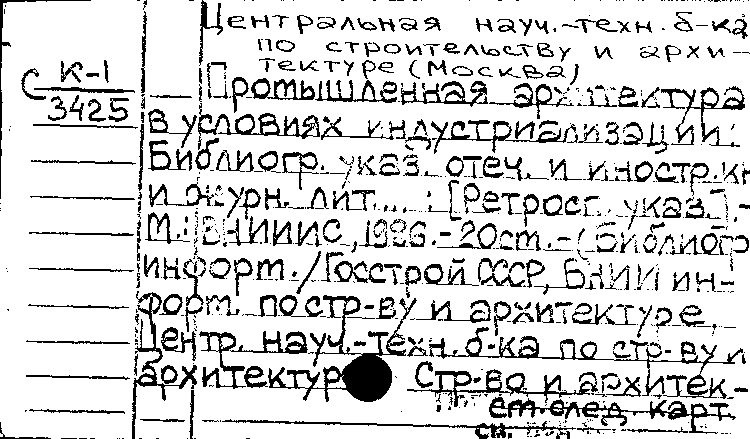 Центральная науч.-техн. б-ка
по строительству и архи-
тектуре (Москва)
С К-1
3425
Промышленная архитектура
в условиях индустриализации:
Библиогр. указ. отеч. и иностр. кн
и журн. лит... : [Ретросп. указ.].-
М.: ВНИИИС, 1986.-20см.-(Библиогр
информ./Госстрой СССР, ВНИИ ин-
форм. по стр-ву и архитектуре,
Центр. науч.-техн. б-ка по стр-ву и
архитектур Стр-во и архитек-
см. след. карт
см.